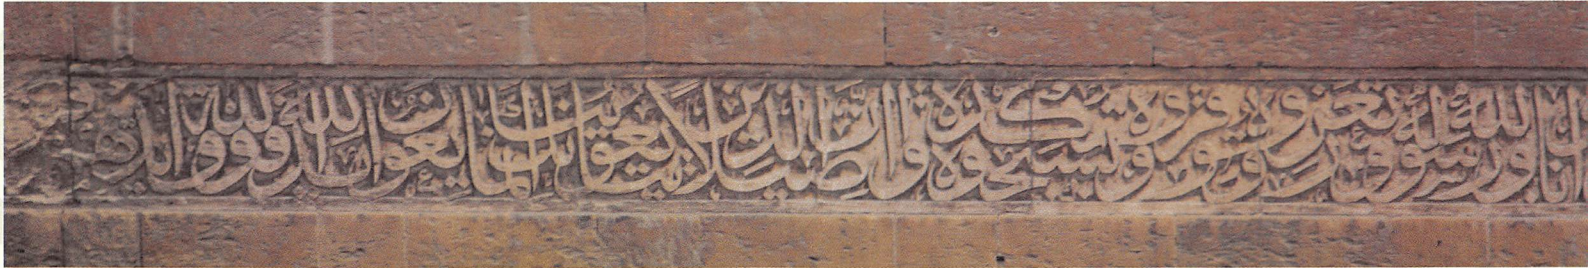 بالله ورسوله وتعزروه وتوقروه وتسبحوه بكرة وأصيلا إن الذين يبايعونك إنما يبايعون الله يد الله فوق أيديهم